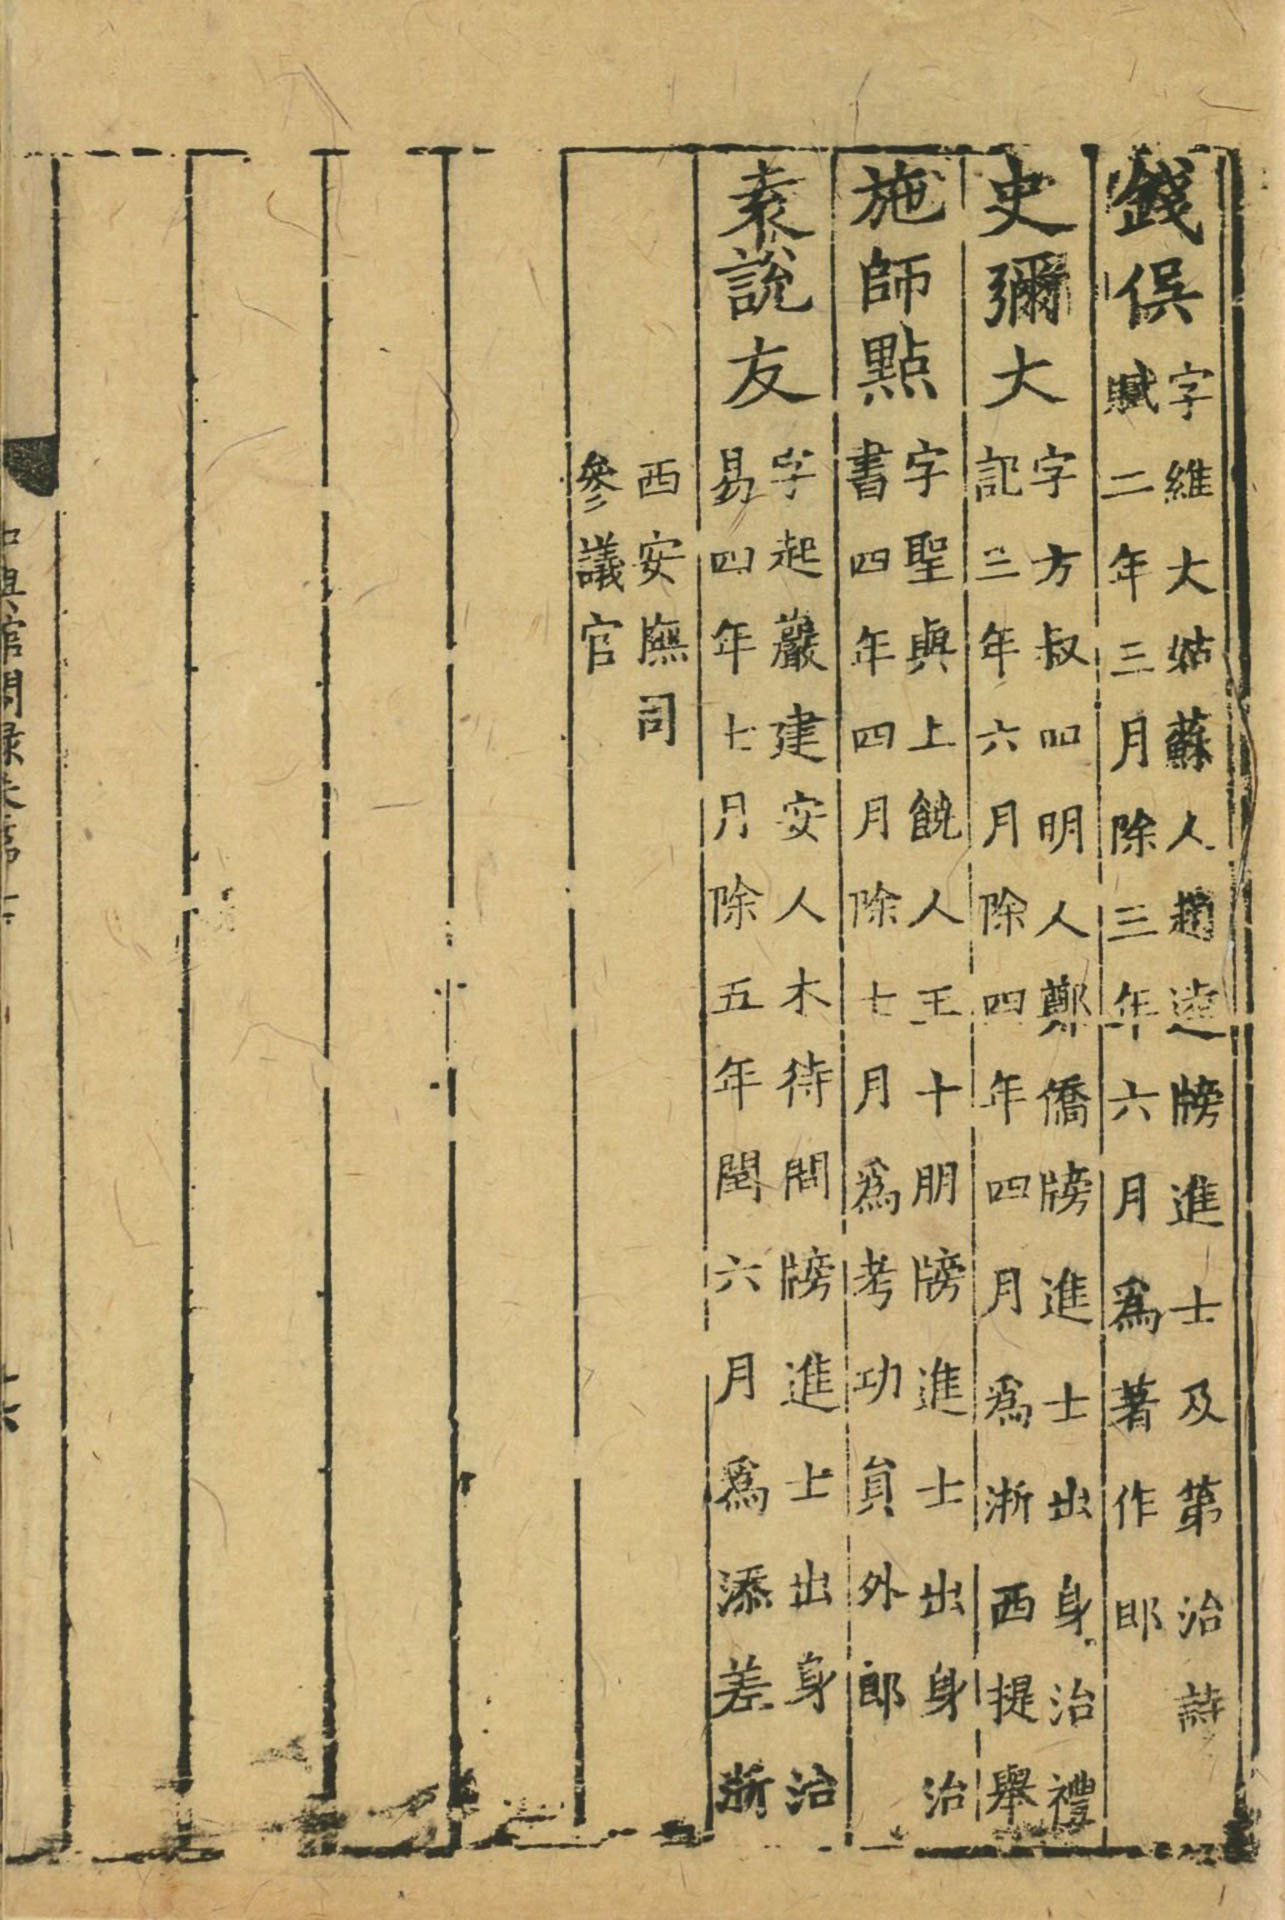 錢俁字維大姑蘇人趙逵牓進士及第治詩
賦二年三月除三年六月爲著作郎
史彌大字方叔四明人鄭僑牓進士出身治禮
記三年六月除四年四月爲浙西提舉
施師點字聖與上饒人王十朋牓進士出身治
書四年四月除七月爲考功員外郎
袁說友字起巖建安人木待問牓進士出身治
易四年七月除五年閏六月爲添差浙
西安撫司
參議官
中興館閣錄卷第七